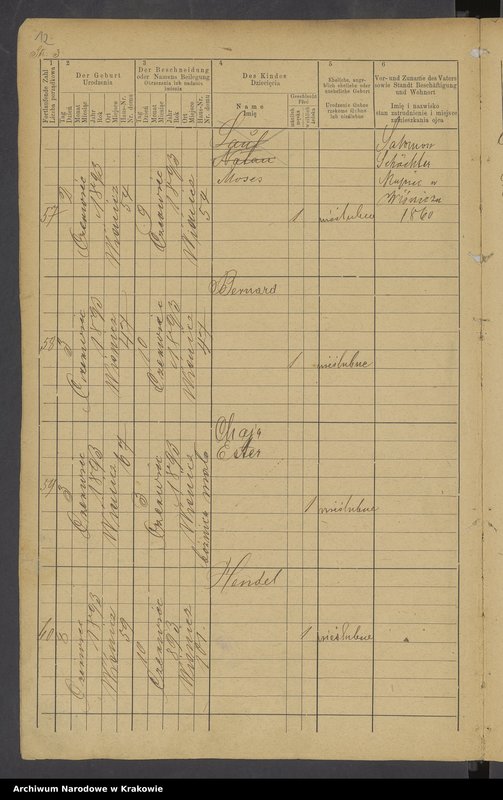 12
Fortlaufende Zahl
Liczba porządkowa
1
2
Der Geburt
Urodzenia
Tag
Dzień
Monat
Miesiąc
Jahr
Rok
Ort
Miejsce
Haus-Nr.
Nr. domu
3
Der Beschneidung
oder Namens Beilegung
Obrzezania lub nadania
imienia
Tag
Dzień
Monat
Miesiąc
Jahr
Rok
Ort
Miejsce
Haus-Nr.
Nr. domu
4
Des Kindes
Dziecięcia
Name
Imię
Geschlecht
Płeć
männlich
męska
weiblich
żeńska
5
Ehelich, ange-
blich ehelich oder
unehelich Geburt
Urodzenie ślubne
rzekomo ślubne
lub nieślubne
6
Vor- und Zuname des Vaters
sowie Standt Beschäftigung
und Wohnort
Imię i nazwisko
stan zatrudnienie i miejsce
zamieszkania ojca
57
2
Czerwiec
1893
Wiśnicz
54
9
Czerwiec
1893
Wiśnicz
54
Natan
Moses
1
nieślubne
Salomon
Schächter
Kupiec w
Wiśniczu
1860
58
3
Czerwiec
1893
Wiśnicz
47
10
Czerwiec
1893
Wiśnicz
47
Bernard
1
nieślubne
59
3
Czerwiec
1893
Wiśnicz
67
3
Czerwiec
1893
Wiśnicz
Chaja
Ester
1
nieślubne
60
8
Czerwiec
1893
Wiśnicz
59
10
Czerwiec
1893
Wiśnicz
Hendel
1
nieślubne
Archiwum Narodowe w Krakowie